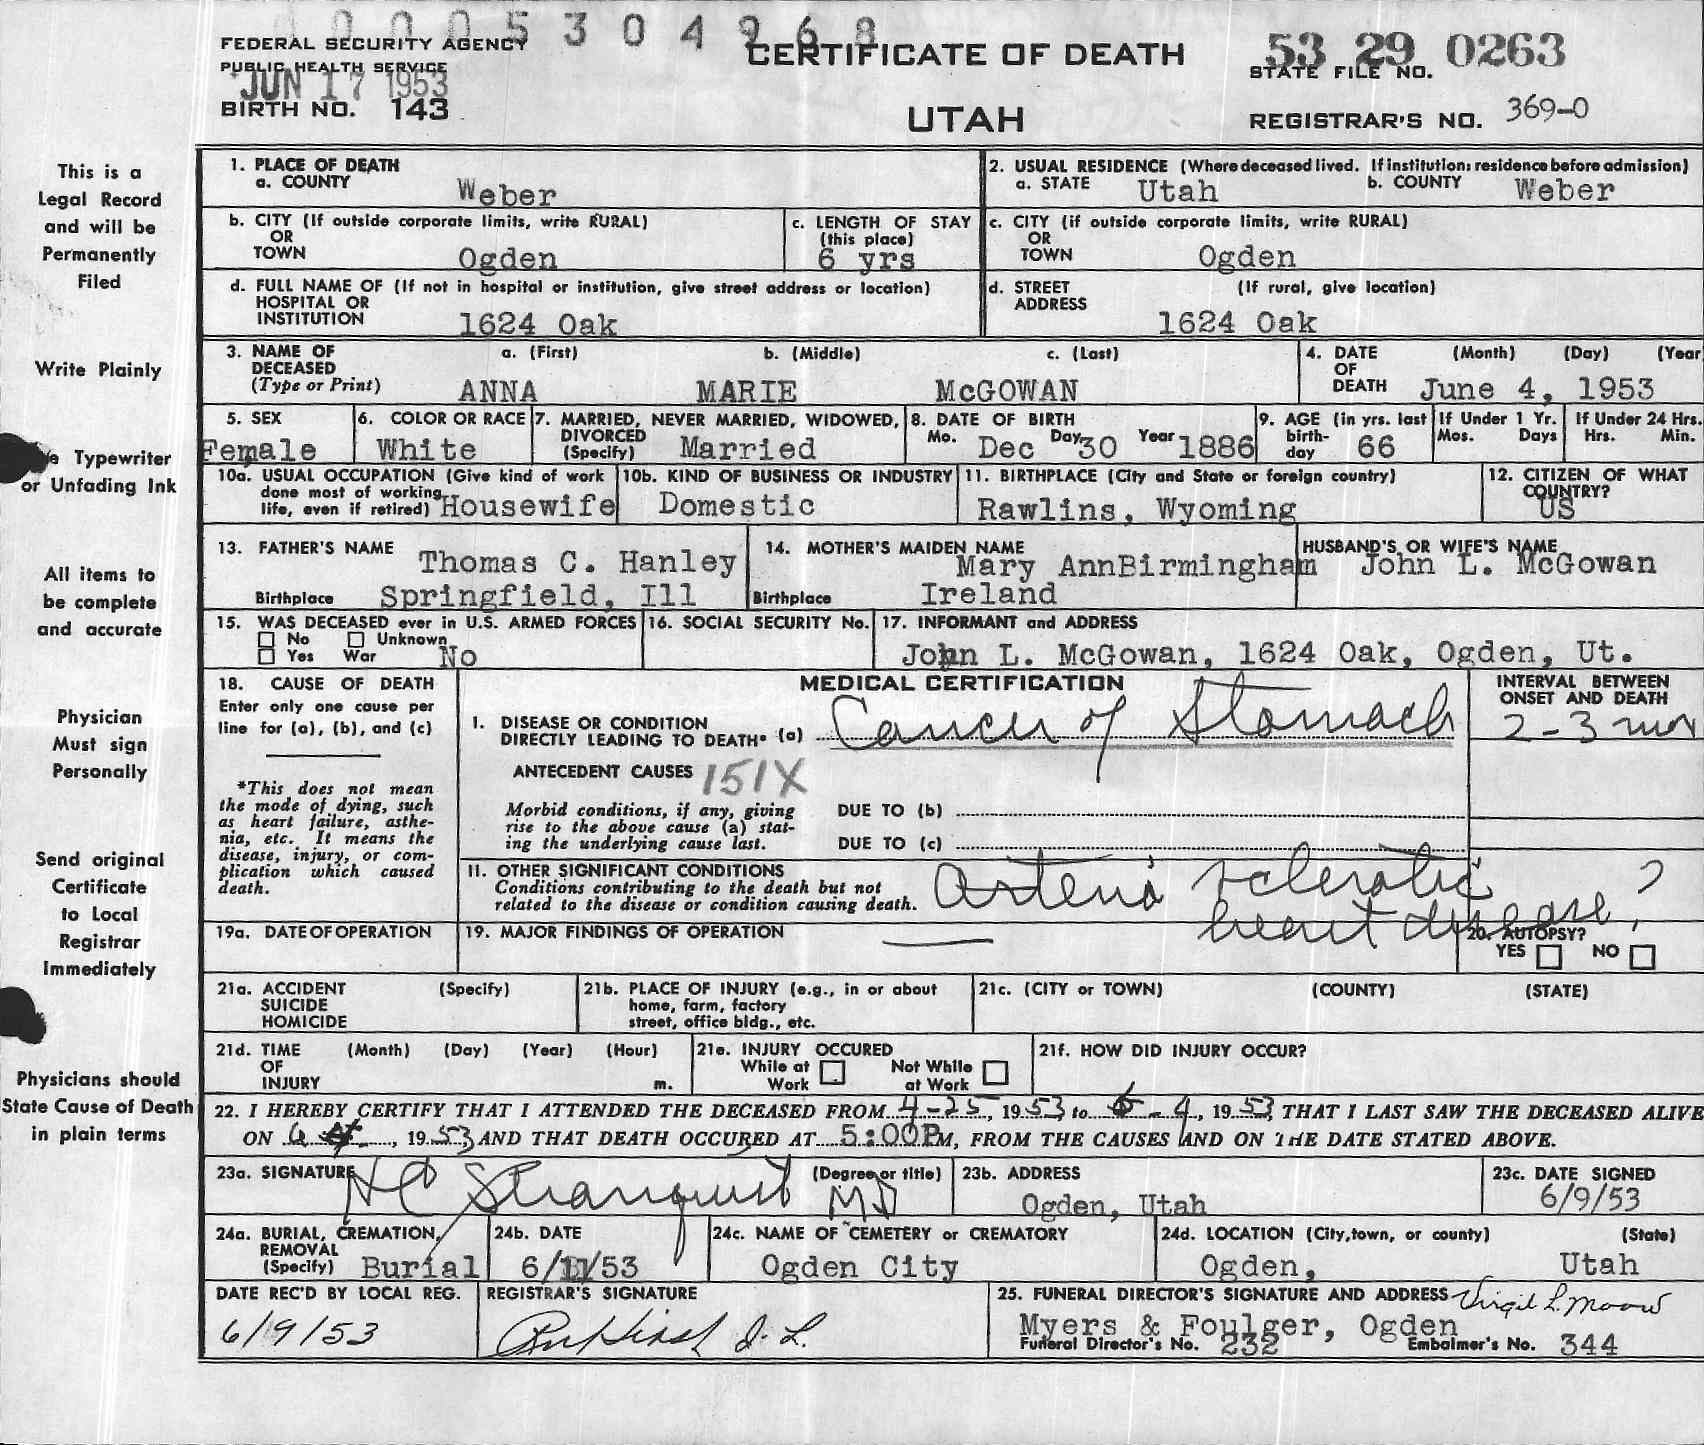 0 0 0 5 3 0 4 9 6 8
FEDERAL SECURITY AGENCY
PUBLIC HEALTH SERVICE
JUN 17 1953
BIRTH NO. 143
CERTIFICATE OF DEATH
UTAH
53 29 0263
STATE FILE NO.
REGISTRAR'S NO. 369-0
This is a
Legal Record
and will be
Permanently
Filed
Write Plainly
Typewriter
or Unfading Ink
All items to
be complete
and accurate
Physician
Must sign
Personally
Send original
Certificate
to Local
Registrar
Immediately
Physicians should
State Cause of Death
in plain terms
1. PLACE OF DEATH
a. COUNTY Weber
2. USUAL RESIDENCE (Where deceased lived. If institution: residence before admission)
a. STATE Utah b. COUNTY Weber
b. CITY (If outside corporate limits, write RURAL)
OR
TOWN Ogden
c. LENGTH OF STAY
(this place)
6 yrs
c. CITY (if outside corporate limits, write RURAL)
OR
TOWN Ogden
d. FULL NAME OF (If not in hospital or institution, give street address or location)
HOSPITAL OR
INSTITUTION 1624 Oak
d. STREET (If rural, give location)
ADDRESS
1624 Oak
3. NAME OF a. (First) b. (Middle) c. (Last)
DECEASED
(Type or Print) ANNA MARIE McGOWAN
4. DATE (Month) (Day) (Year
OF
DEATH June 4, 1953
5. SEX
Female
6. COLOR OR RACE
White
7. MARRIED, NEVER MARRIED, WIDOWED,
DIVORCED
(Specify) Married
8. DATE OF BIRTH
Mo. Dec Day 30 Year 1886
9. AGE (in yrs. last
birth-
day 66
If Under 1 Yr.
Mos. Days
If Under 24 Hrs.
Hrs. Min.
10a. USUAL OCCUPATION (Give kind of work
done most of working
life, even if retired) Housewife
10b. KIND OF BUSINESS OR INDUSTRY
Domestic
11. BIRTHPLACE (City and State or foreign country)
Rawlins, Wyoming
12. CITIZEN OF WHAT
COUNTRY?
US
13. FATHER'S NAME Thomas C. Hanley
Birthplace Springfield, Ill
14. MOTHER'S MAIDEN NAME
Mary AnnBirmingham
Birthplace Ireland
HUSBAND'S OR WIFE'S NAME
John L. McGowan
15. WAS DECEASED ever in U.S. ARMED FORCES
No Unknown
Yes War No
16. SOCIAL SECURITY No.
17. INFORMANT and ADDRESS
John L. McGowan, 1624 Oak, Ogden, Ut.
18. CAUSE OF DEATH
Enter only one cause per
line for (a), (b), and (c)
*This does not mean
the mode of dying, such
as heart failure, asthe-
nia, etc. It means the
disease, injury, or com-
plication which caused
death.
MEDICAL CERTIFICATION
INTERVAL BETWEEN
ONSET AND DEATH
I. DISEASE OR CONDITION
DIRECTLY LEADING TO DEATH* (a) Cancer of Stomach
2-3 mos
ANTECEDENT CAUSES 151X
Morbid conditions, if any, giving
rise to the above cause (a) stat-
ing the underlying cause last.
DUE TO (b)
DUE TO (c)
II. OTHER SIGNIFICANT CONDITIONS
Conditions contributing to the death but not
related to the disease or condition causing death.
Arterio sclerotic ?
heart disease,
19a. DATE OF OPERATION
19. MAJOR FINDINGS OF OPERATION
20. AUTOPSY?
YES NO
21a. ACCIDENT (Specify)
SUICIDE
HOMICIDE
21b. PLACE OF INJURY (e.g., in or about
home, farm, factory
street, office bldg., etc.
21c. (CITY or TOWN) (COUNTY) (STATE)
21d. TIME (Month) (Day) (Year) (Hour)
OF
INJURY m.
21e. INJURY OCCURED
While at Work
Not While at Work
21f. HOW DID INJURY OCCUR?
22. I HEREBY CERTIFY THAT I ATTENDED THE DECEASED FROM 4-25, 1953 to 6-4, 1953, THAT I LAST SAW THE DECEASED ALIVE
ON 6 4, 1953 AND THAT DEATH OCCURED AT 5:00PM, FROM THE CAUSES AND ON THE DATE STATED ABOVE.
23a. SIGNATURE (Degree or title)
HC Stranquist MD
23b. ADDRESS
Ogden, Utah
23c. DATE SIGNED
6/9/53
24a. BURIAL, CREMATION,
REMOVAL
(Specify) Burial
24b. DATE
6/11/53
24c. NAME OF CEMETERY or CREMATORY
Ogden City
24d. LOCATION (City, town, or county) (State)
Ogden, Utah
DATE REC'D BY LOCAL REG.
6/9/53
REGISTRAR'S SIGNATURE
25. FUNERAL DIRECTOR'S SIGNATURE AND ADDRESS Virgil L. Moore
Myers & Foulger, Ogden
Funeral Director's No. 232 Embalmer's No. 344